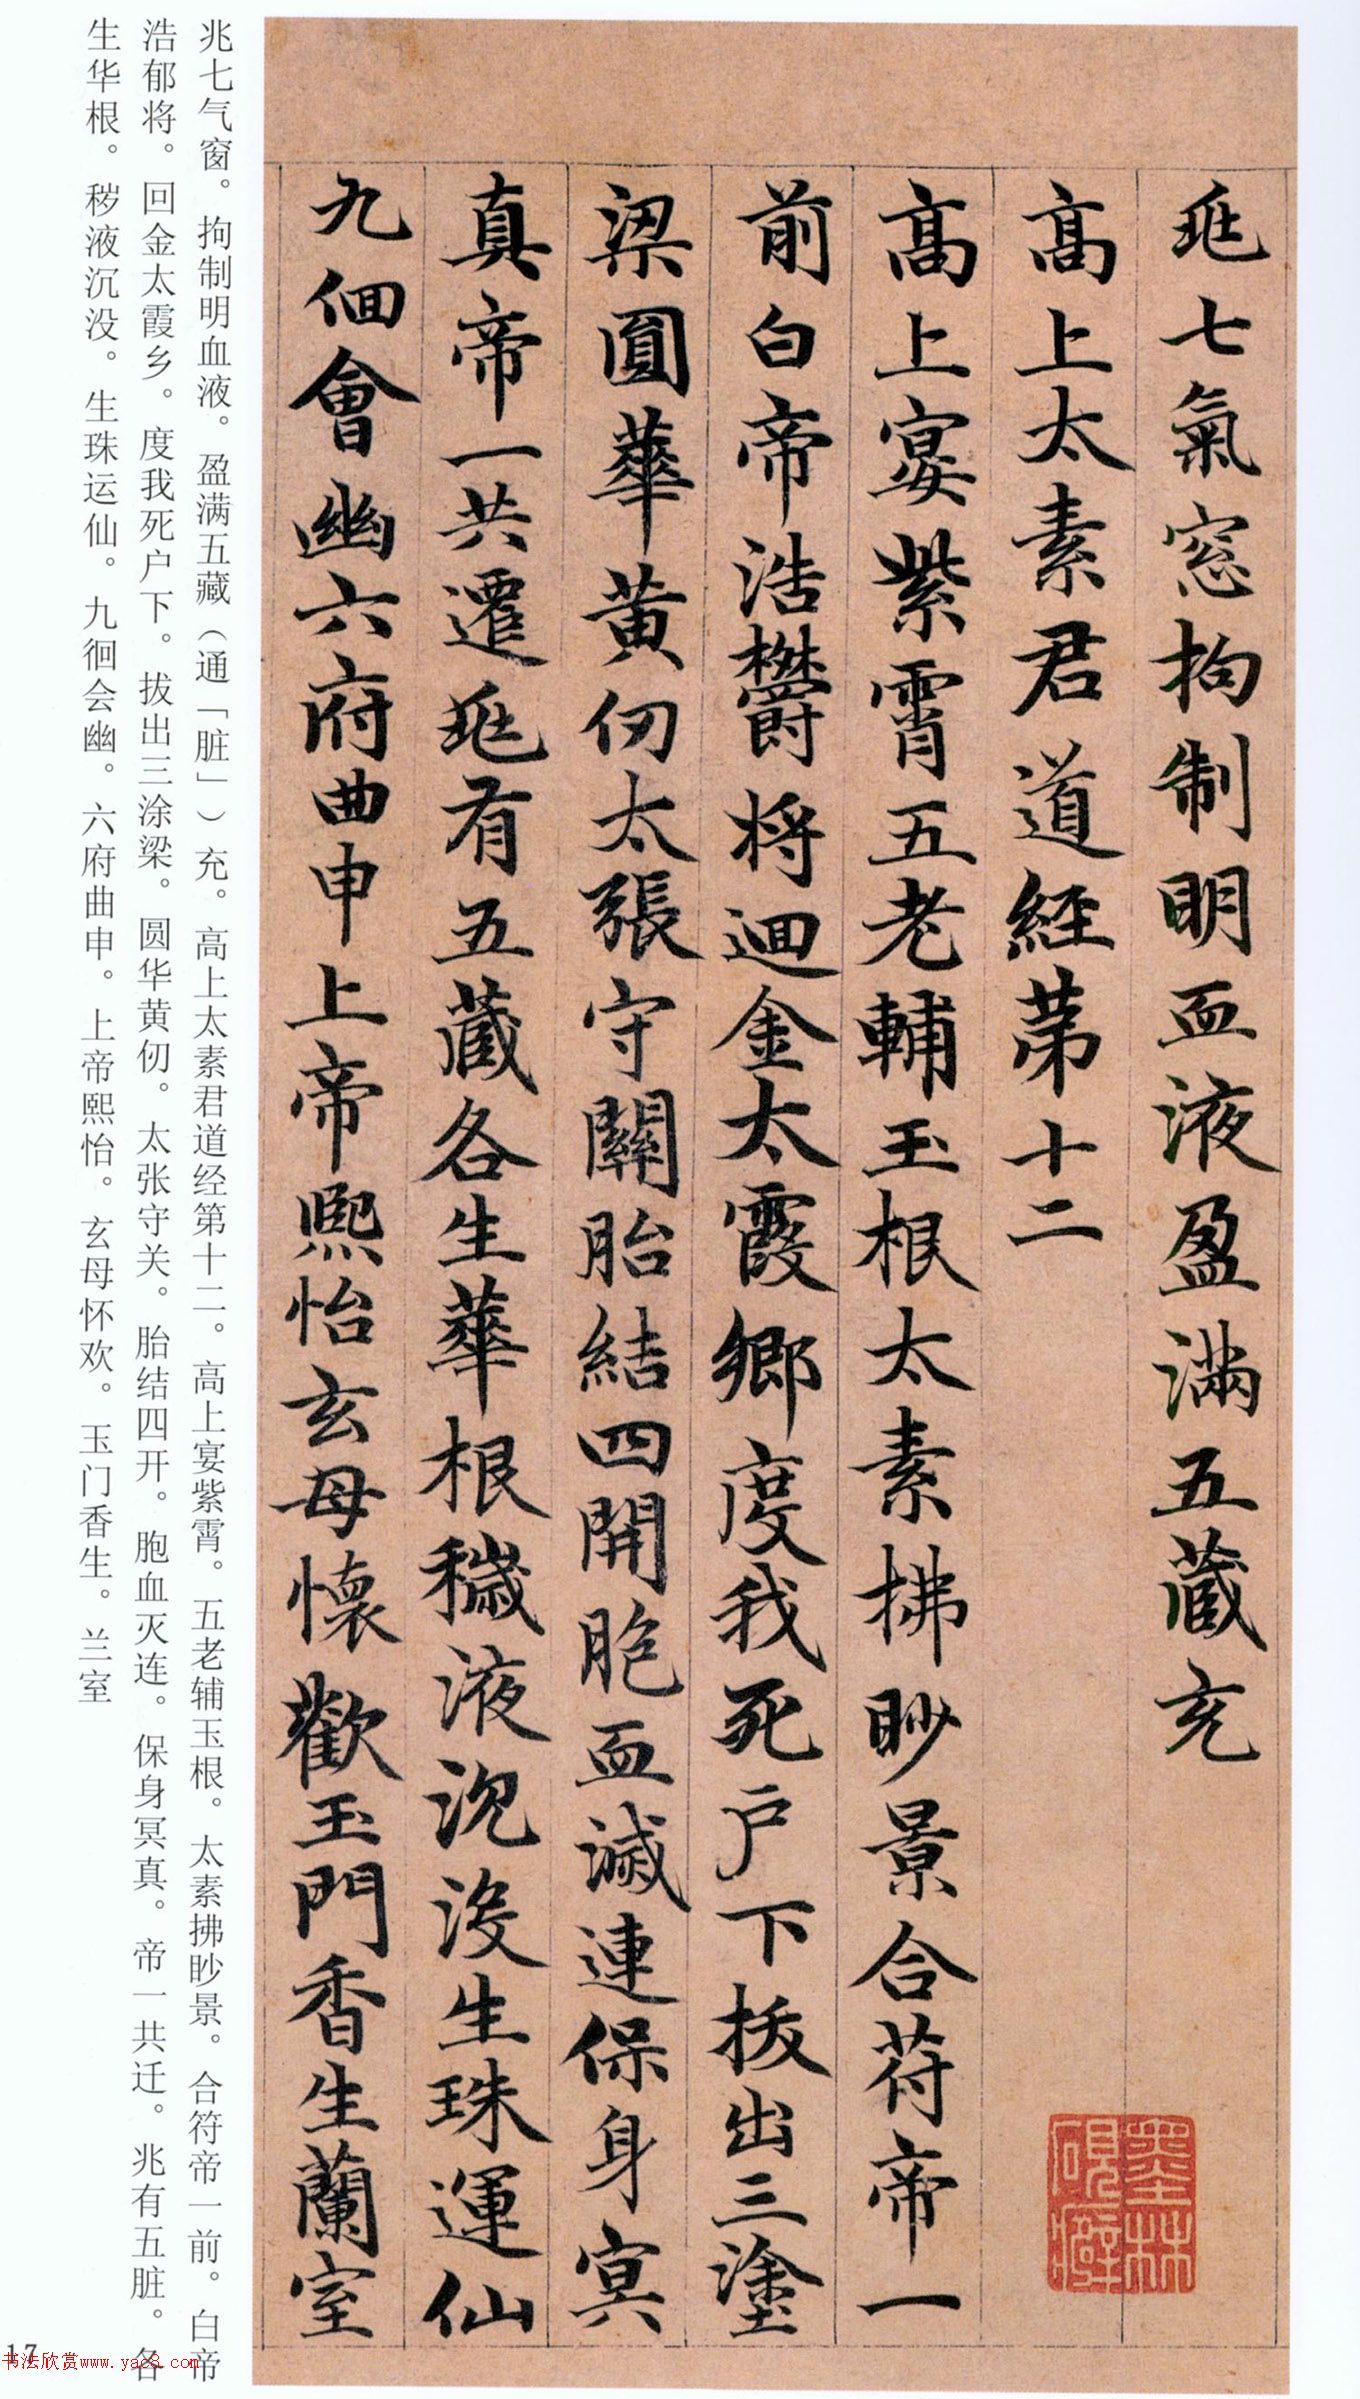 兆七氣窓拘制明血液盈滿五藏充
高上太素君道經第十二
高上宴紫霄五老輔玉根太素拂眇景合符帝一
前白帝浩欝將迴金太霞鄉度我死户下拔出三塗
梁圓華黄仞太張守關胎結四開胞血滅連保身㝠
真帝一共遷兆有五藏各生華根穢液沉没生珠運仙
九徊會幽六府曲申上帝熙怡玄母懷歡玉門香生蘭室
墨林
硯癖
兆七气窗。拘制明血液。盈满五藏（通「脏」）充。高上太素君道经第十二。高上宴紫霄。五老辅玉根。太素拂眇景。合符帝一前。白帝
浩郁将。回金太霞乡。度我死户下。拔出三涂梁。圆华黄仞。太张守关。胎结四开。胞血灭连。保身冥真。帝一共迁。兆有五脏。各
生华根。秽液沉没。生珠运仙。九徊会幽。六府曲申。上帝熙怡。玄母怀欢。玉门香生。兰室
17
书法欣赏www.yac8.com